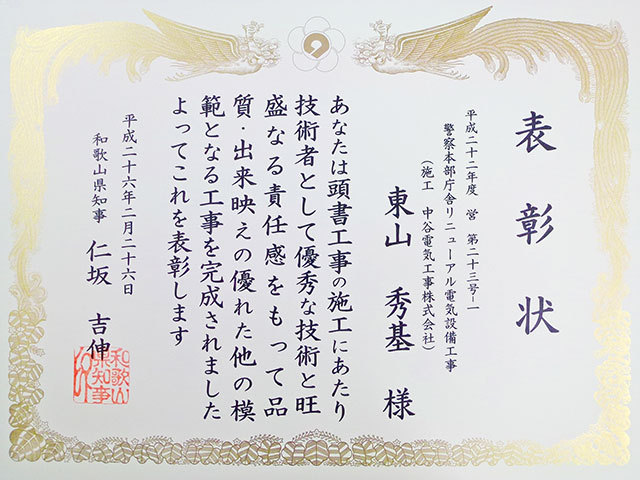 表彰状
平成二十二年度 営 第二十三号-一
警察本部庁舎リニューアル電気設備工事
(施工 中谷電気工事株式会社)
東山 秀基 様
あなたは頭書工事の施工にあたり
技術者として優秀な技術と旺
盛なる責任感をもって品
質・出来映えの優れた他の模
範となる工事を完成されました
よってこれを表彰します
平成二十六年二月二十六日
和歌山県知事 仁坂 吉伸
和歌山
県知事
印